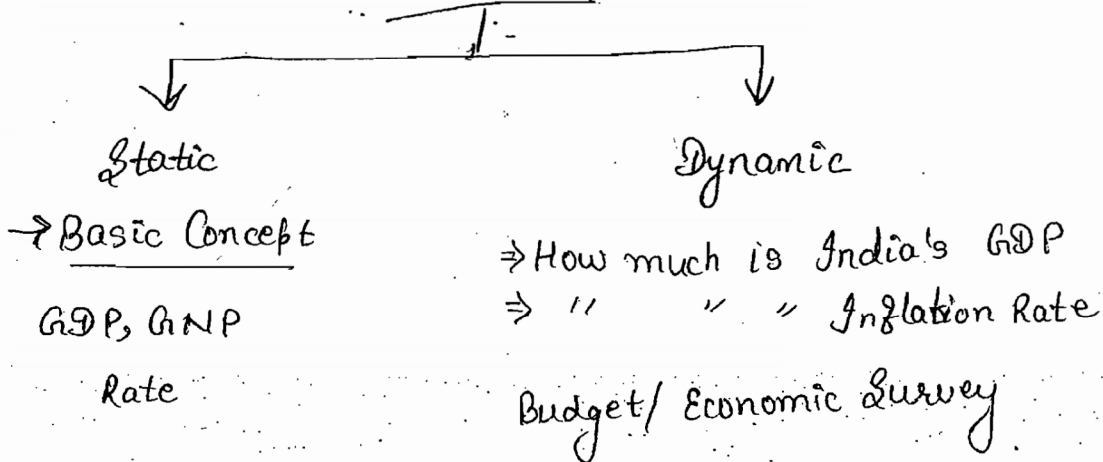 Static
→ Basic Concept
GDP, GNP
Rate
Dynamic
⇒ How much is India's GDP
⇒ " " " Inflation Rate
Budget/ Economic Survey